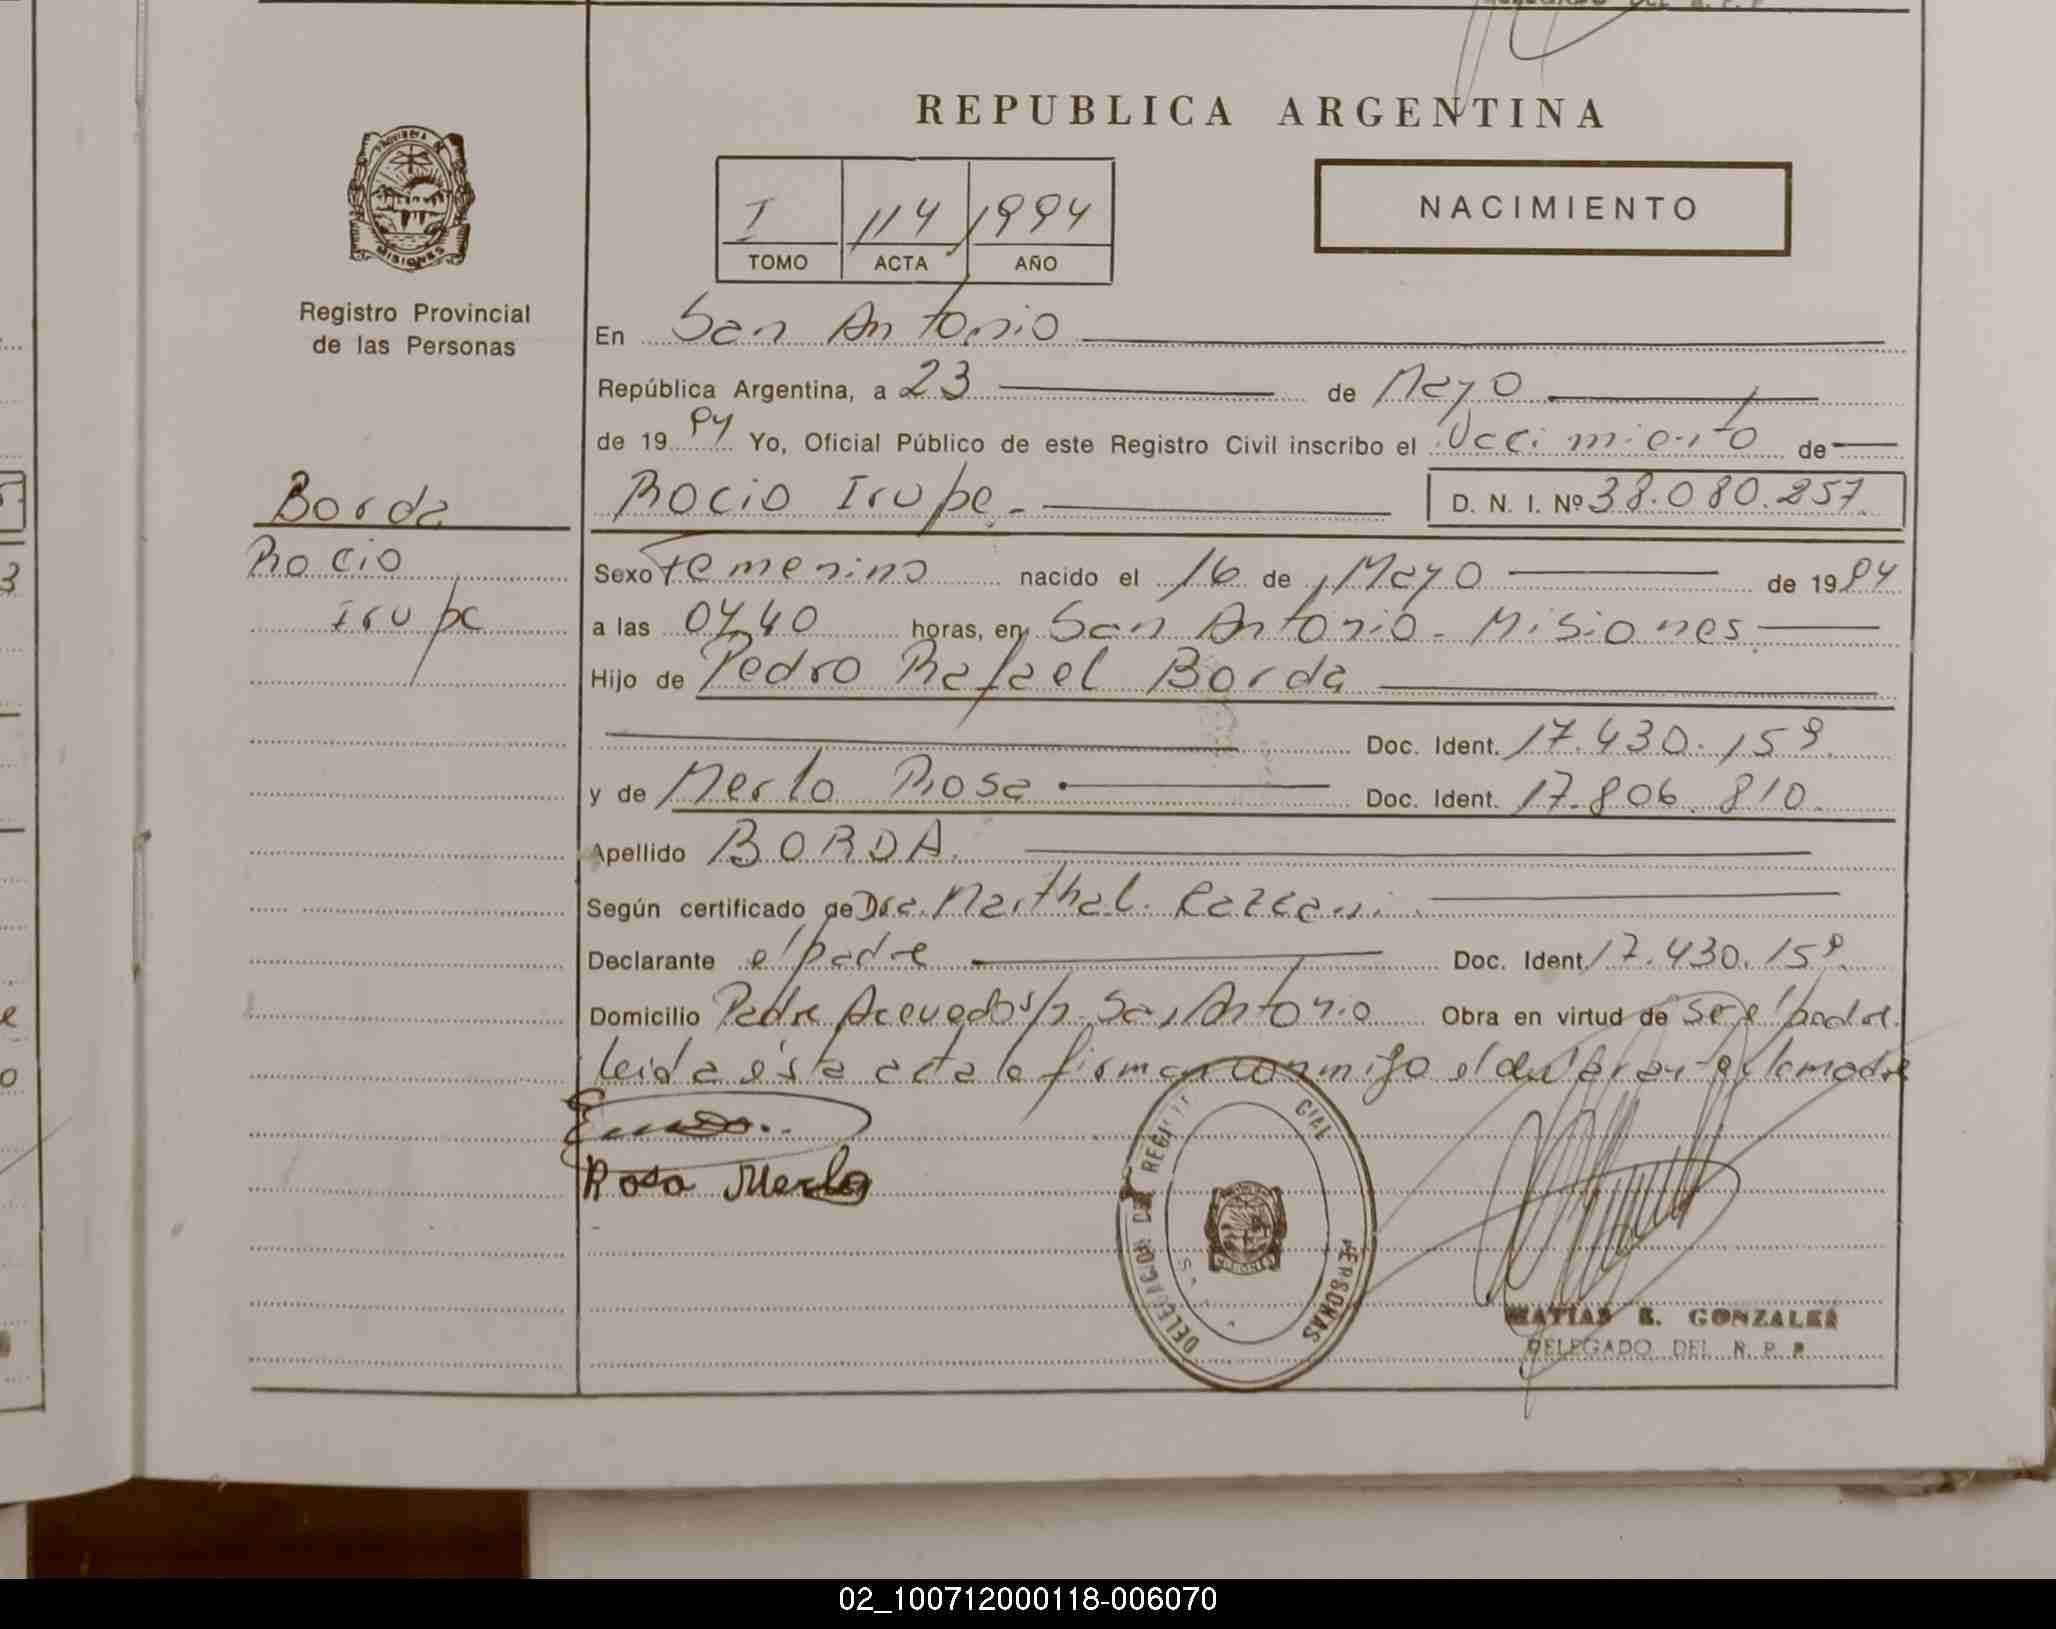 REPUBLICA ARGENTINA
PROVINCIA DE
MISIONES
Registro Provincial
de las Personas
I 114 1994
TOMO ACTA AÑO
NACIMIENTO
En San Antonio
República Argentina, a 23 de Mayo
de 1994 Yo, Oficial Público de este Registro Civil inscribo el Nacimiento de
Borda
Rocio Irupe.- D. N. I. Nº 38.080.257.
Rocio
Irupe
Sexo Femenino nacido el 16 de Mayo de 1994
a las 04,40 horas, en San Antonio - Misiones
Hijo de Pedro Rafael Borda
Doc. Ident. 17.430.159.
y de Merlo Rosa Doc. Ident. 17.806.810.
Apellido BORDA.
Según certificado de Dra. Martha L.
Declarante el padre Doc. Ident 17.430.159.
Domicilio Padre Acevedo s/n. San Antonio Obra en virtud de ser el padre.
leida ésta acta la firman conmigo el declarante y la madre
Rosa Merlo
DELEGACION DEL REGI CIAL
PERSONAS
MATIAS R. GONZALEZ
DELEGADO DEL R. P. P.
02_100712000118-006070